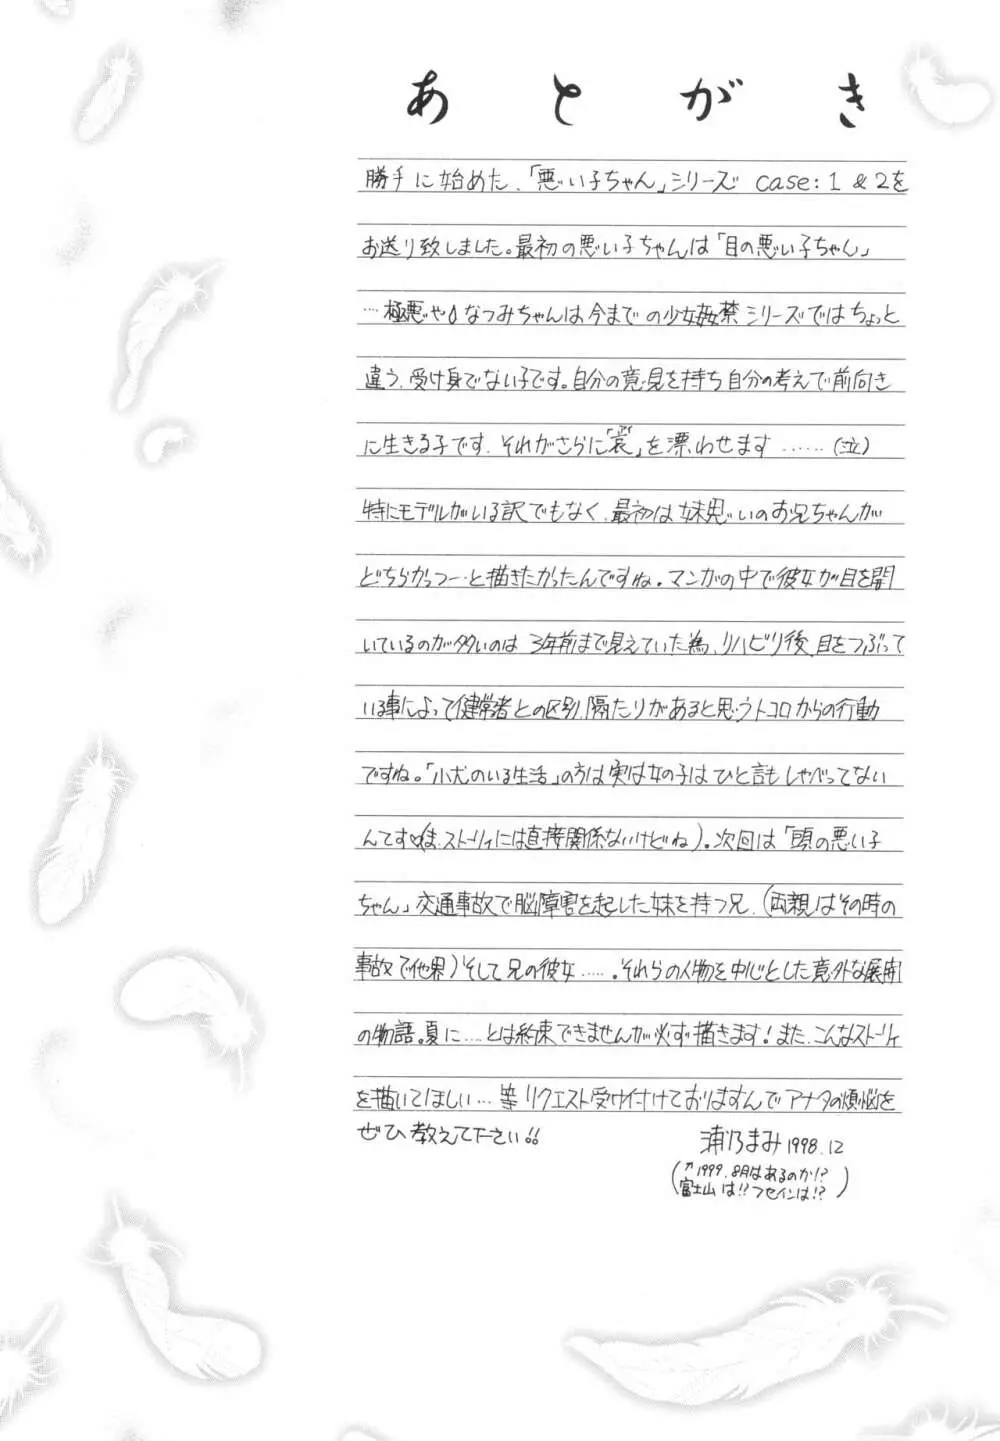 あとがき
勝手に始めた、「悪い子ちゃん」シリーズ case: 1 & 2を
お送り致しました。最初の悪い子ちゃんは「目の悪い子ちゃん」
…極悪や なつみちゃんは今までの少女姦禁シリーズではちょっと
違う、受け身でない子です。自分の意見を持ち自分の考えで前向き
に生きる子です。それがさらに「哀」を漂わせます……(泣)
特にモデルがいる訳でもなく、最初は妹思いのお兄ちゃんが
どちらかっつー…と描きたかったんですね。マンガの中で彼女が目を開
いているのが多いのは 3年前まで見えていた為、リハビリ後、目をつぶって
いる事によって健常者との区別、隔たりがあると思うトコロからの行動
ですね。「小犬のいる生活」の方は実は女の子はひと言もしゃべってない
んです(ま、ストーリィには直接関係ないけどね)。次回は「頭の悪い子
ちゃん」交通事故で脳障害を起した妹を持つ兄、(両親はその時の
事故で他界)そして兄の彼女……。それらの人物を中心とした意外な展開
の物語。夏に……とは約束できませんが必ず描きます!また、こんなストーリィ
を描いてほしい…等リクエスト受け付けておりますんでアナタの煩悩を
ぜひ教えて下さい!!
浦乃まみ 1998.12
(↑1999.8月はあるのか!?
富士山は!!フセインは!?)